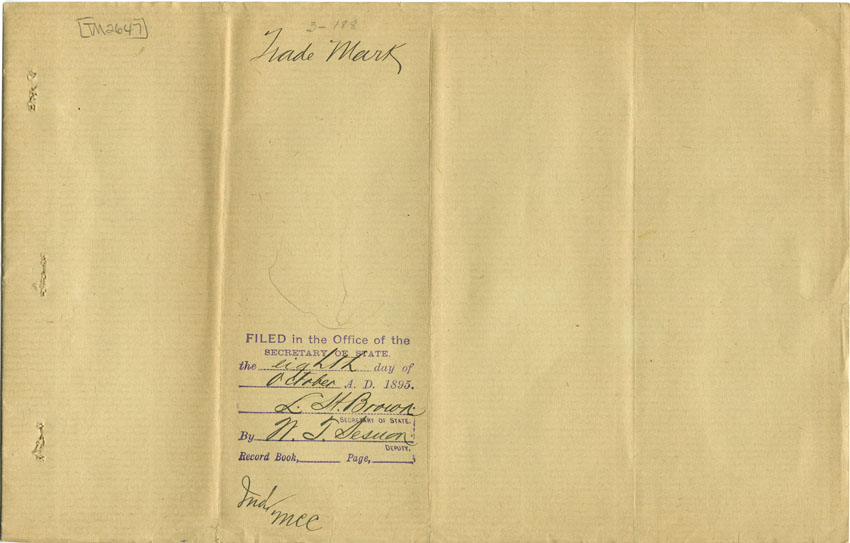 [TM2647]
3-188
Trade Mark
FILED in the Office of the
SECRETARY OF STATE.
the eighth day of
October A. D. 1895.
L. H. Brown
SECRETARY OF STATE.
By W. T.
DEPUTY.
Record Book, Page,
Ind
MCC